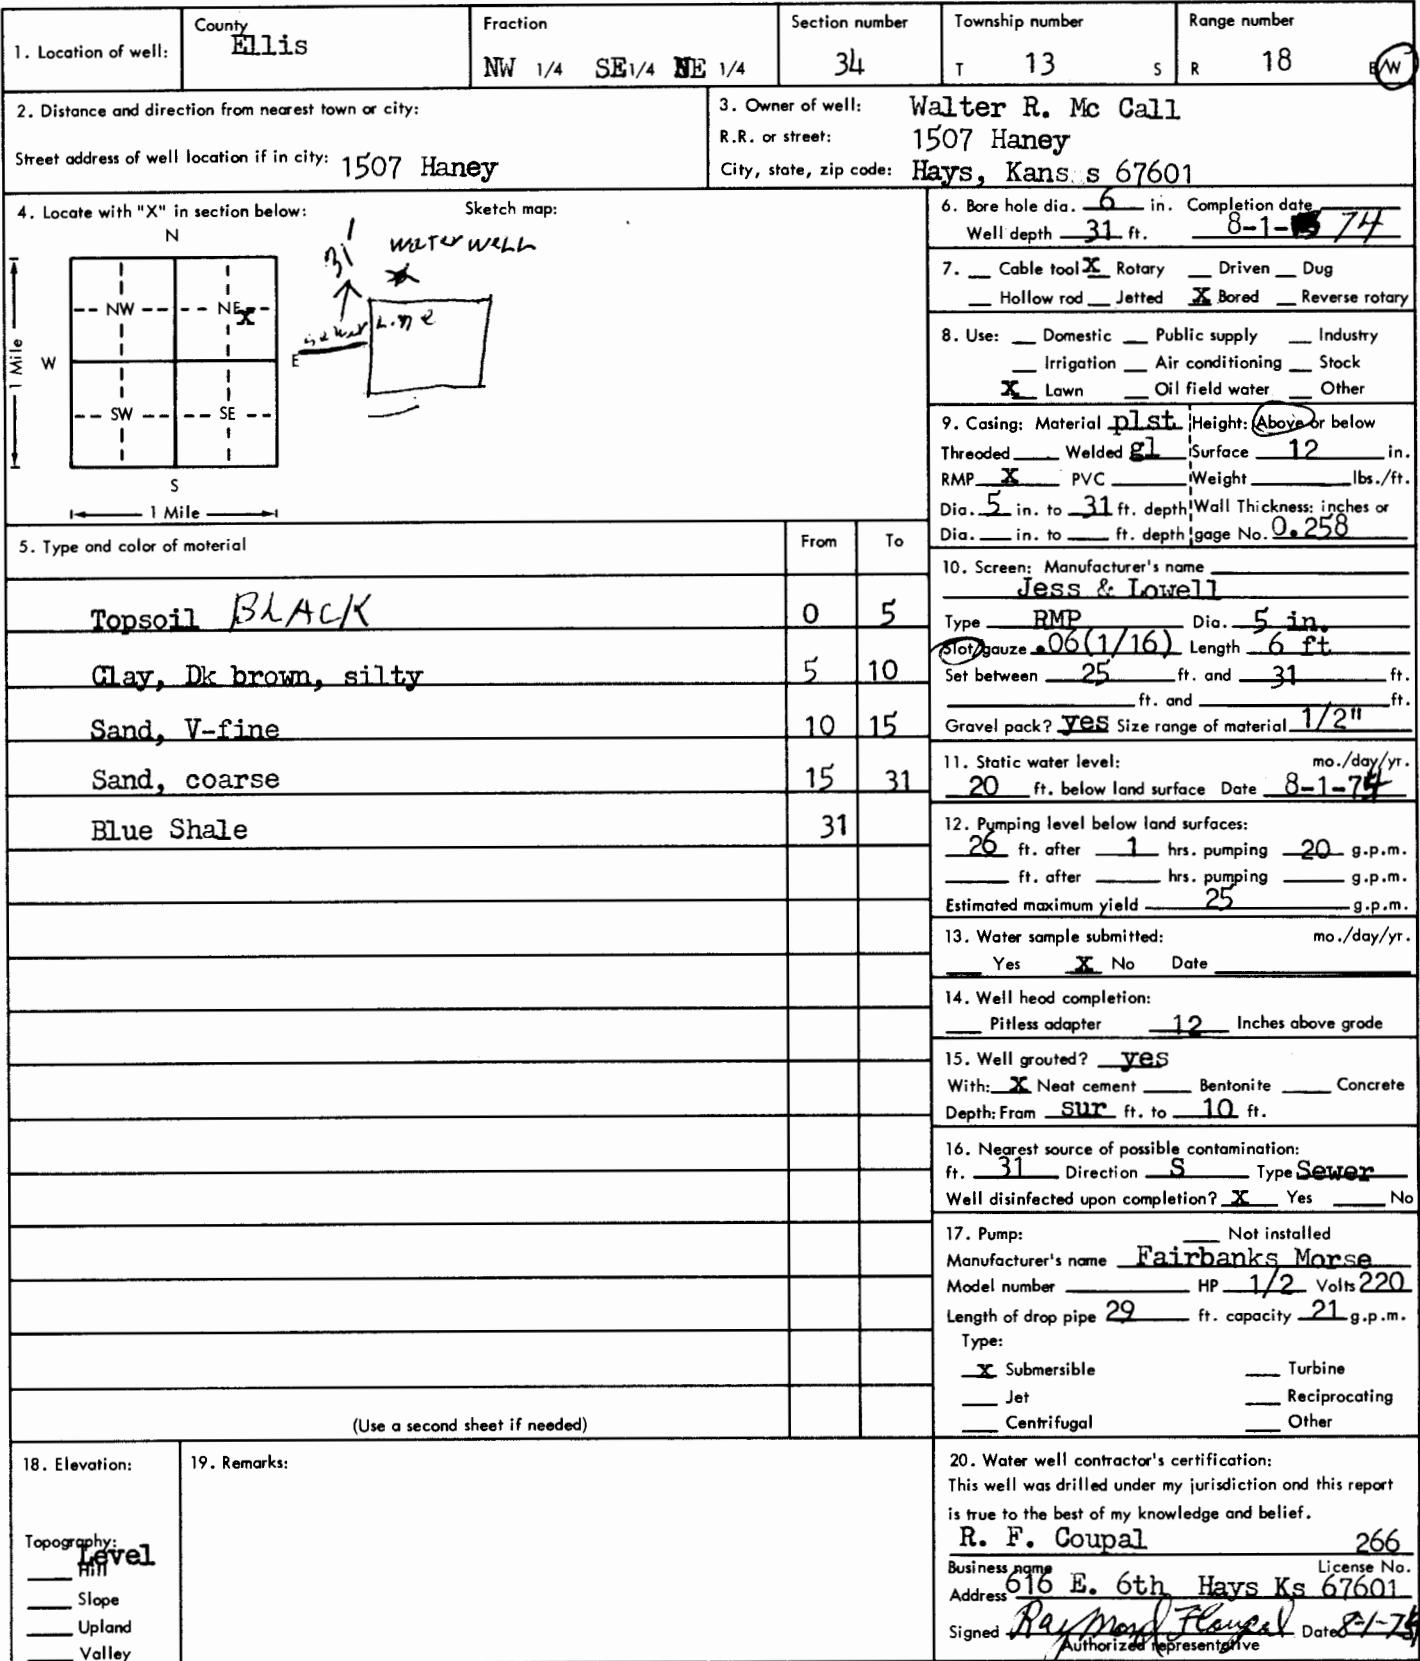 1. Location of well:
County
Ellis
Fraction
NW 1/4 SE 1/4 NE 1/4
Section number
34
Township number
T 13 S
Range number
R 18 E/W
2. Distance and direction from nearest town or city:
Street address of well location if in city: 1507 Haney
3. Owner of well: Walter R. Mc Call
R.R. or street: 1507 Haney
City, state, zip code: Hays, Kans s 67601
4. Locate with "X" in section below:
Sketch map:
N
NW NE X
W E
SW SE
S
1 Mile
1 Mile
31'
water well
Line
5. Type and color of material From To
Topsoil BLACK 0 5
Clay, Dk brown, silty 5 10
Sand, V-fine 10 15
Sand, coarse 15 31
Blue Shale 31
(Use a second sheet if needed)
6. Bore hole dia. 6 in. Completion date
Well depth 31 ft. 8-1- 74
7. Cable tool X Rotary Driven Dug
Hollow rod Jetted X Bored Reverse rotary
8. Use: Domestic Public supply Industry
Irrigation Air conditioning Stock
X Lawn Oil field water Other
9. Casing: Material plst Height: Above or below
Threaded Welded gl Surface 12 in.
RMP X PVC Weight lbs./ft.
Dia. 5 in. to 31 ft. depth Wall Thickness: inches or
Dia. in. to ft. depth gage No. 0.258
10. Screen: Manufacturer's name
Jess & Lowell
Type RMP Dia. 5 in.
Slot/gauze .06(1/16) Length 6 ft
Set between 25 ft. and 31 ft.
ft. and ft.
Gravel pack? yes Size range of material 1/2"
11. Static water level: mo./day/yr.
20 ft. below land surface Date 8-1-74
12. Pumping level below land surfaces:
26 ft. after 1 hrs. pumping 20 g.p.m.
ft. after hrs. pumping g.p.m.
Estimated maximum yield 25 g.p.m.
13. Water sample submitted: mo./day/yr.
Yes X No Date
14. Well head completion:
Pitless adapter 12 Inches above grade
15. Well grouted? yes
With: X Neat cement Bentonite Concrete
Depth: From sur ft. to 10 ft.
16. Nearest source of possible contamination:
ft. 31 Direction S Type Sewer
Well disinfected upon completion? X Yes No
17. Pump: Not installed
Manufacturer's name Fairbanks Morse
Model number HP 1/2 Volts 220
Length of drop pipe 29 ft. capacity 21 g.p.m.
Type:
X Submersible Turbine
Jet Reciprocating
Centrifugal Other
18. Elevation:
Topography:
Level
Hill
Slope
Upland
Valley
19. Remarks:
20. Water well contractor's certification:
This well was drilled under my jurisdiction and this report
is true to the best of my knowledge and belief.
R. F. Coupal 266
Business name License No.
Address 616 E. 6th Hays Ks 67601
Signed Raymond F Coupal Date 8-1-74
Authorized representative